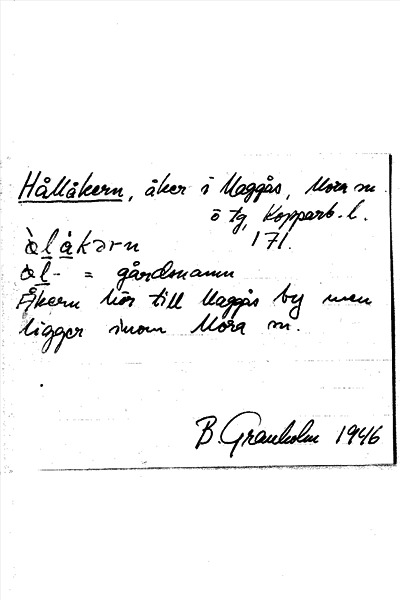 Hållåkern, åker i Maggås, Mora sn.
ö tg, Kopparb. l.
171.
àlàkərn
àl- = gårdsnamn
Åkern hör till Maggås by men
ligger inom Mora sn.
B. Granholm 1946